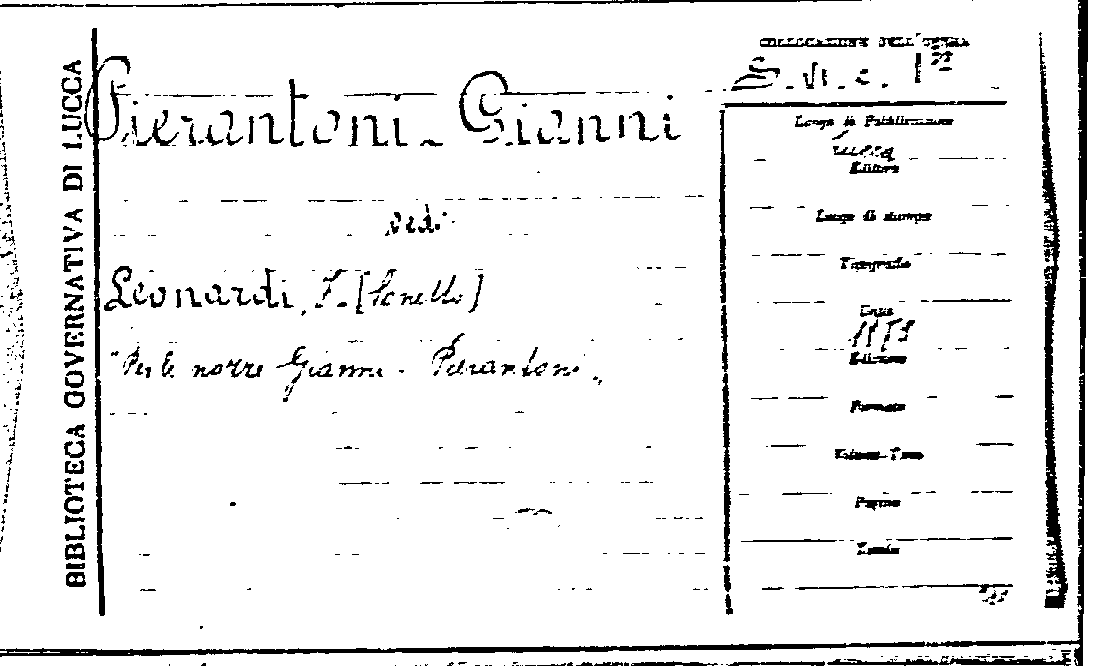 BIBLIOTECA GOVERNATIVA DI LUCCA
Pierantoni - Gianni
vedi
Leonardi, F. [Sonetto]
"Per le nozze Gianni - Pierantoni"
COLLOCAZIONE DELL'OPERA
Luogo di Pubblicazione
Lucca
Editore
Luogo di stampa
Tipografia
Data
Edizione
Formato
Volume-Tomo
Pagine